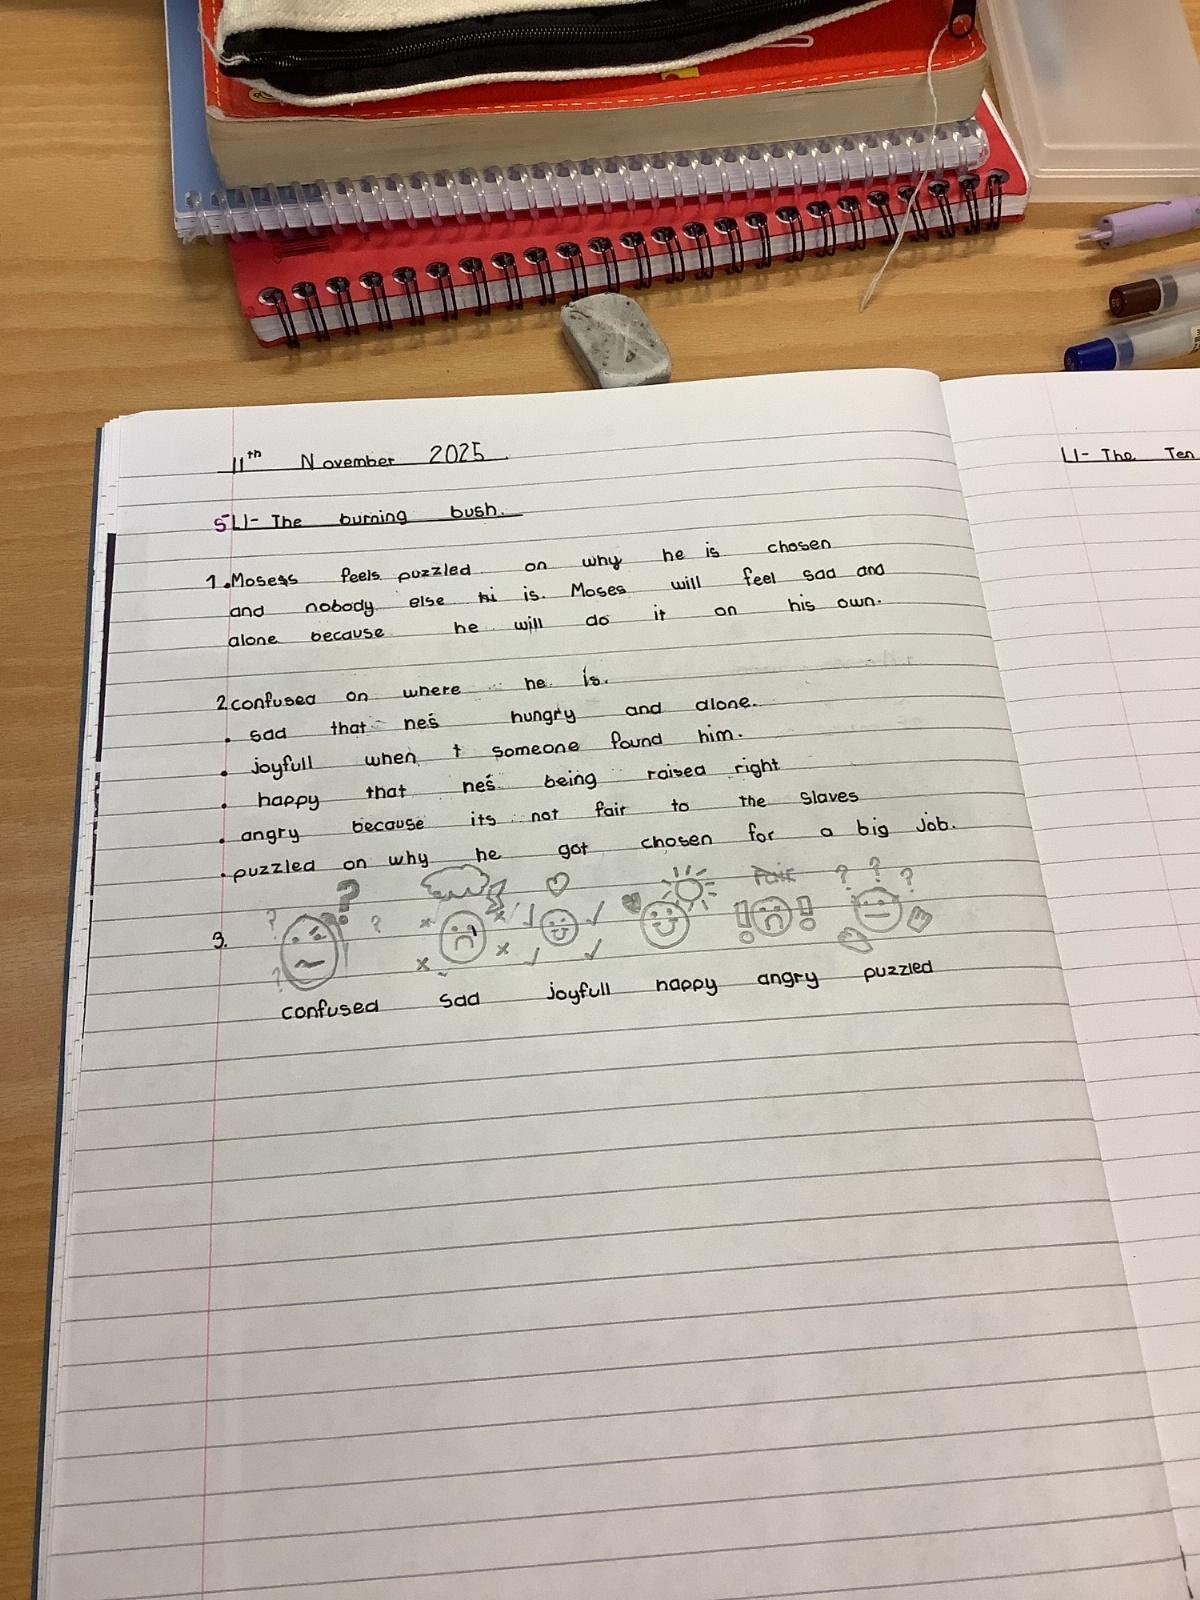 11th November 2025
LI- The Ten
5 LI- The burning bush.
1. Moses feels puzzled on why he is chosen
and nobody else is. Moses will feel sad and
alone because he will do it on his own.
2. confused on where he is.
• sad that he's hungry and alone.
• joyfull when someone found him.
• happy that he's being raised right
• angry because its not fair to the slaves
• puzzled on why he got chosen for a big job.
? ? ? ? ? ? ?
3. x x x x ! !
confused sad joyfull happy angry puzzled